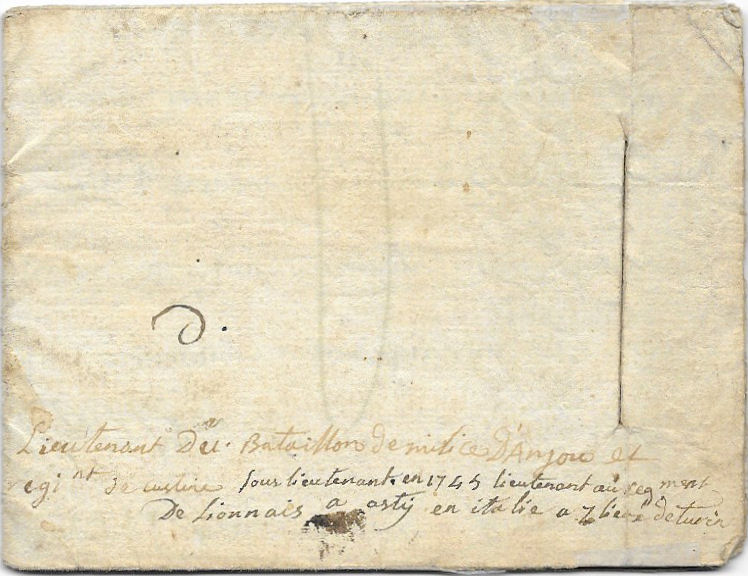 D.
Lieutenant Du Bataillon de milice D'Anjou et
regint de custine sous lieutenant en 1745 lieutenant au regment
De Lionnais a asty en italie a 7 lieux de turin